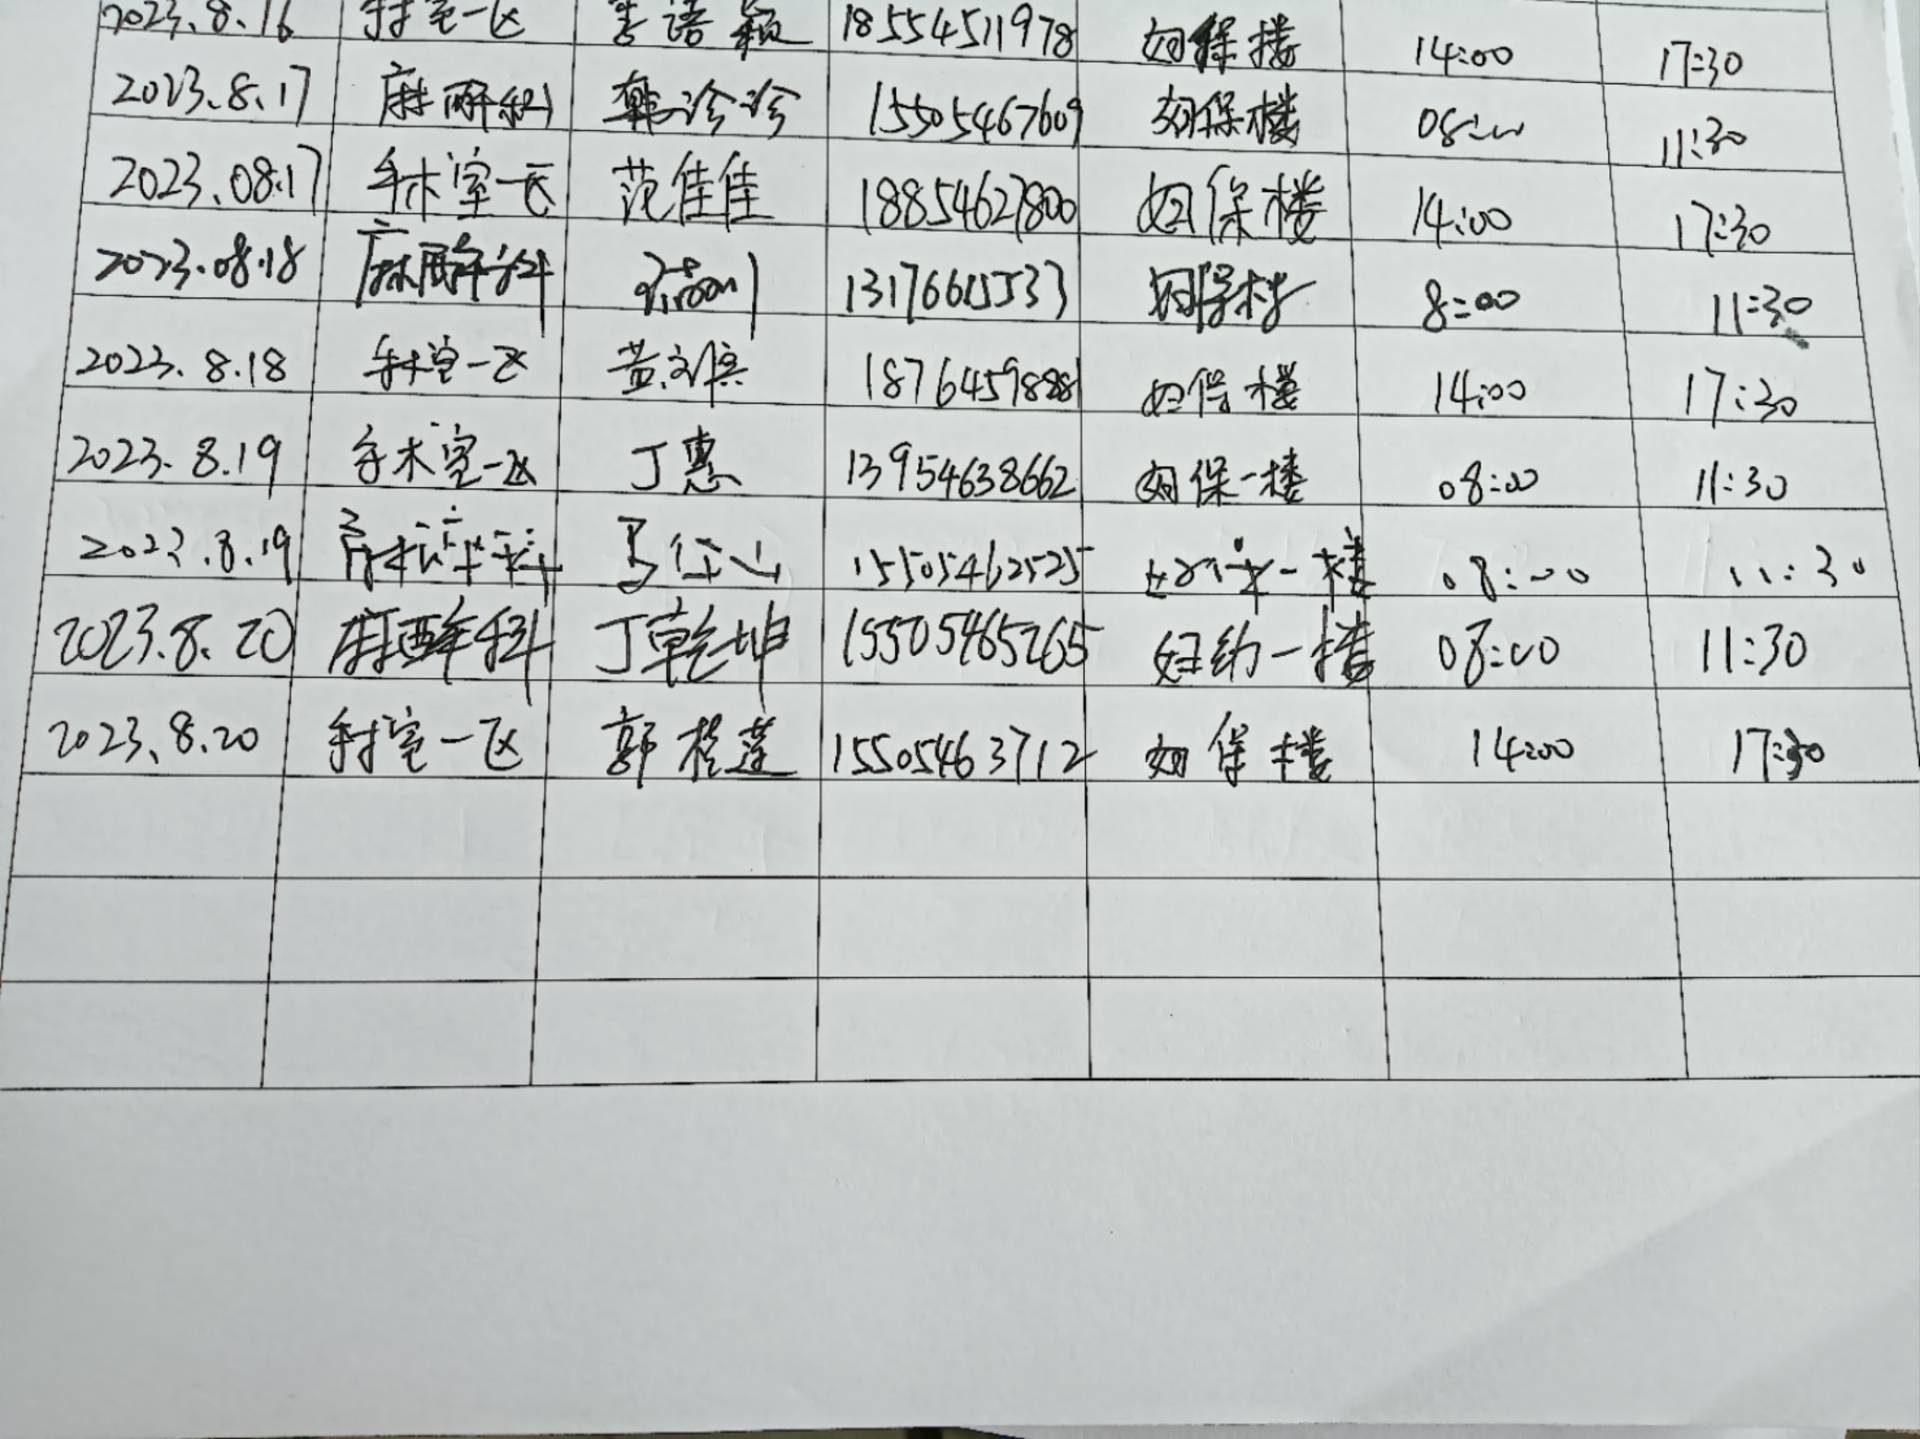 2023.8.16 手术室一区 李语颖 18554511978 妇保楼 14:00 17:30
2023.8.17 麻醉科 韩诊诊 15505467609 妇保楼 08:00 11:30
2023.08.17 手术室一区 范佳佳 18854627800 妇保楼 14:00 17:30
2023.08.18 麻醉科 妇保楼 8:00 11:30
2023.8.18 手术室一区 18764459888 妇保楼 14:00 17:30
2023.8.19 手术室一区 丁惠 13954638662 妇保一楼 08:00 11:30
2023.8.19 麻醉科 15505462525 一楼 08:00 11:30
2023.8.20 麻醉科 丁乾坤 15505465265 妇幼一楼 08:00 11:30
2023.8.20 手术室一区 郭桂莲 15505463712 妇保楼 14:00 17:30